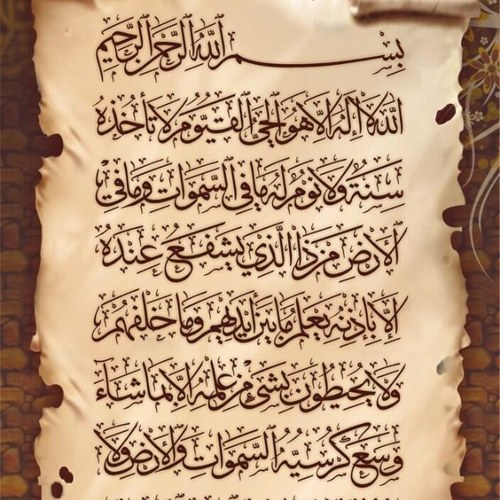 بسم الله الرحمن الرحيم
الله لا إله إلا هو الحي القيوم لا تأخذه
سنة ولا نوم له ما في السموات وما في
الأرض من ذا الذي يشفع عنده
إلا بإذنه يعلم ما بين أيديهم وما خلفهم
ولا يحيطون بشيء من علمه إلا بما شاء
وسع كرسيه السموات والأرض ولا